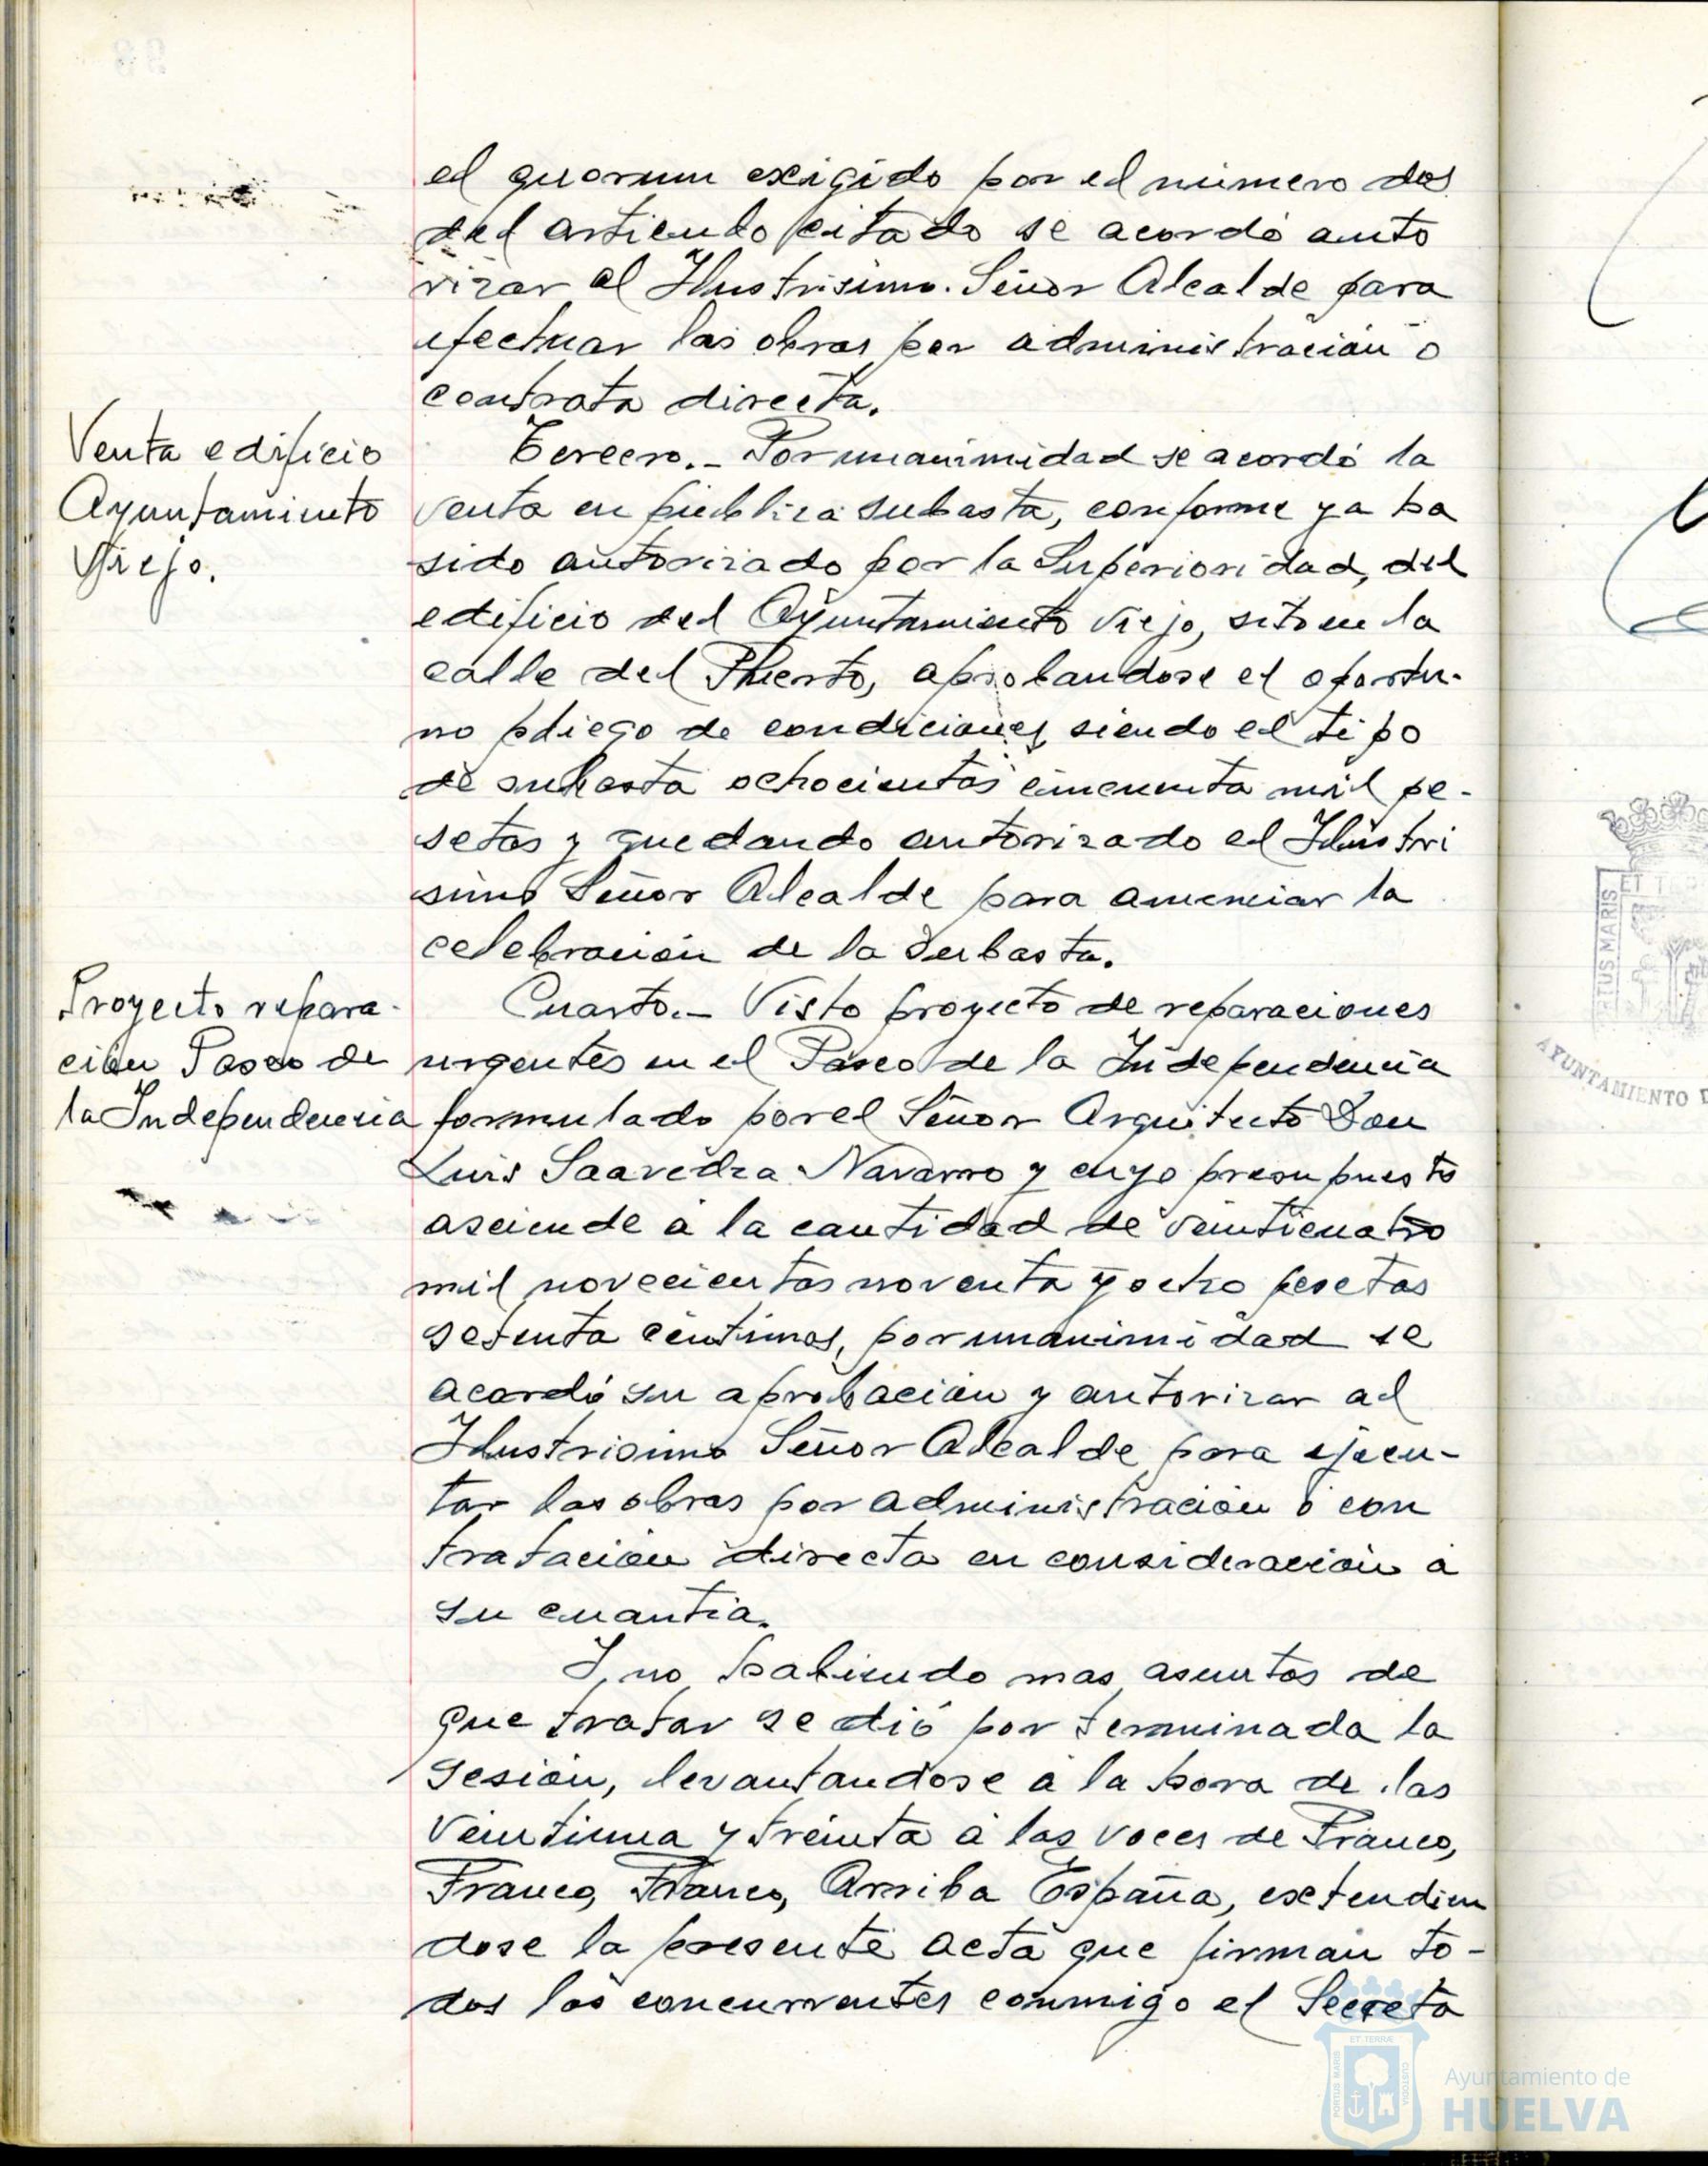 el quorum exigido por el número dos
del articulo citado se acordó auto
rizar al Ilustrisimo. Señor Alcalde para
efectuar las obras por administración o
contrata directa.
Venta edificio
Ayuntamiento
Viejo.
Tercero.- Por unanimidad se acordó la
venta en pública subasta, conforme ya ha
sido autorizado por la Superioridad, del
edificio del Ayuntamiento Viejo, sito en la
calle del Puerto, aprobandose el oportu-
no pliego de condiciones, siendo el tipo
de subasta ochocientas cincuenta mil pe-
setas y quedando autorizado el Ilustri
simo Señor Alcalde para anunciar la
celebración de la subasta.
Proyecto repara-
ción Paseo de
la Independencia
Cuarto.- Visto proyecto de reparaciones
urgentes en el Paseo de la Independencia
formulado por el Señor Arquitecto Don
Luis Saavedra Navarro y cuyo presupuesto
asciende a la cantidad de veinticuatro
mil novecientas noventa y ocho pesetas
setenta céntimos, por unanimidad se
acordó su aprobación y autorizar al
Ilustrisimo Señor Alcalde para ejecu-
tar las obras por administración ó con
tratación directa en consideración a
su cuantia.
Y no habiendo mas asuntos de
que tratar se dió por terminada la
sesión, levantandose a la hora de las
veintiuna y treinta a las voces de Franco,
Franco, Franco, Arriba España, extendien
dose la presente acta que firman to-
dos los concurrentes conmigo el Secreta
ET TER
RTUS MARIS
AYUNTAMIENTO D
ET TERRÆ
PORTUS MARIS
CUSTODIA
Ayuntamiento de
HUELVA